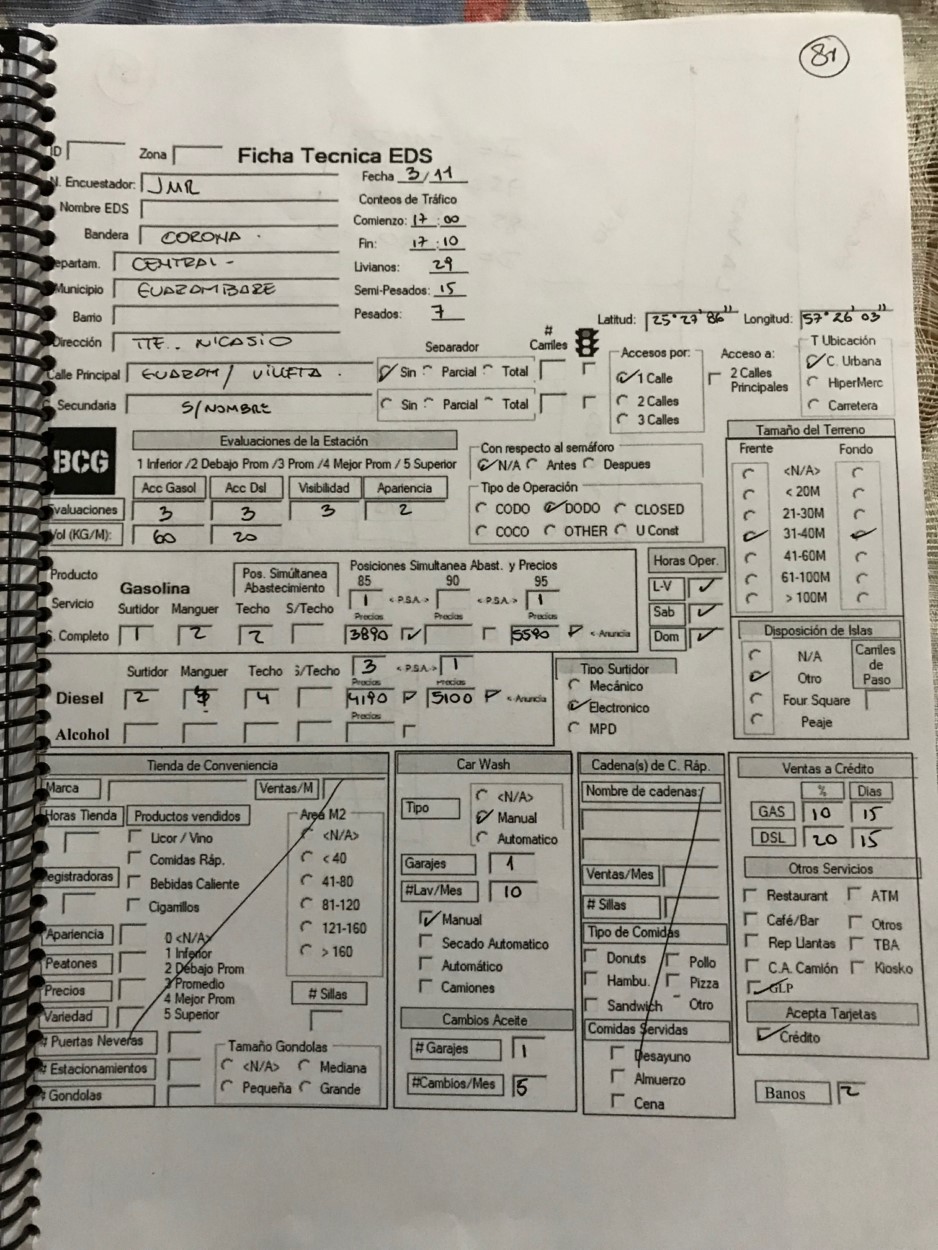 81
ID Zona Ficha Tecnica EDS
N. Encuestador: JMR Fecha 3/11
Nombre EDS Conteos de Tráfico
Bandera CORONA . Comienzo: 17:00
Fin: 17:10
epartam. CENTRAL - Livianos: 29
Municipio GUAZOMBARE Semi-Pesados: 15
Barrio Pesados: 7
Latitud: 25°27'86" Longitud: 57°26'03"
Dirección TTE. NICASIO
Separador # Carriles Accesos por: Acceso a: T Ubicación
Calle Principal GUAZOM / VILLETA . Sin Parcial Total 1 Calle 2 Calles Principales C. Urbana
2 Calles HiperMerc
Secundaria S/NOMBRE Sin Parcial Total 3 Calles Carretera
BCG Evaluaciones de la Estación Con respecto al semáforo Tamaño del Terreno
1 Inferior /2 Debajo Prom /3 Prom /4 Mejor Prom / 5 Superior N/A Antes Despues Frente Fondo
Acc Gasol Acc Dsl Visibilidad Apariencia Tipo de Operación
Evaluaciones 3 3 3 2 CODO DODO CLOSED
Vol (KG/M): 60 20 COCO OTHER U Const
<N/A>
< 20M
21-30M
31-40M
41-60M
61-100M
> 100M
Producto Gasolina Pos. Simúltanea Abastecimiento Posiciones Simultanea Abast. y Precios Horas Oper.
85 90 95
Servicio 1 < P.S.A.> < P.S.A.> 1 L-V
Surtidor Manguer Techo S/Techo Precios Precios Precios Sab
S. Completo 1 2 2 3890 5590 < Anuncia Dom
Disposición de Islas
N/A Carriles de Paso
Otro
Four Square
Peaje
Surtidor Manguer Techo S/Techo 3 < P.S.A.> 1 Tipo Surtidor
Precios Precios Mecánico
Diesel 2 4 4190 5100 < Anuncia Electronico
Precios MPD
Alcohol
Tienda de Conveniencia
Marca Ventas/M
Horas Tienda Productos vendidos Area M2
Licor / Vino <N/A>
Comidas Ráp. < 40
egistradoras Bebidas Caliente 41-80
Cigarrillos 81-120
121-160
> 160
Apariencia 0 <N/A>
1 Inferior
Peatones 2 Debajo Prom
Precios 3 Promedio
4 Mejor Prom # Sillas
Variedad 5 Superior
# Puertas Neveras
# Estacionamientos Tamaño Gondolas
<N/A> Mediana
# Gondolas Pequeña Grande
Car Wash
Tipo <N/A>
Manual
Automatico
Garajes 1
#Lav/Mes 10
Manual
Secado Automatico
Automático
Camiones
Cambios Aceite
# Garajes 1
#Cambios/Mes 5
Cadena(s) de C. Ráp.
Nombre de cadenas:
Ventas/Mes
# Sillas
Tipo de Comidas
Donuts Pollo
Hambu. Pizza
Sandwich Otro
Comidas Servidas
Desayuno
Almuerzo
Cena
Ventas a Crédito
% Dias
GAS 10 15
DSL 20 15
Otros Servicios
Restaurant ATM
Café/Bar Otros
Rep Llantas TBA
C.A. Camión Kiosko
GLP
Acepta Tarjetas
Crédito
Banos 2